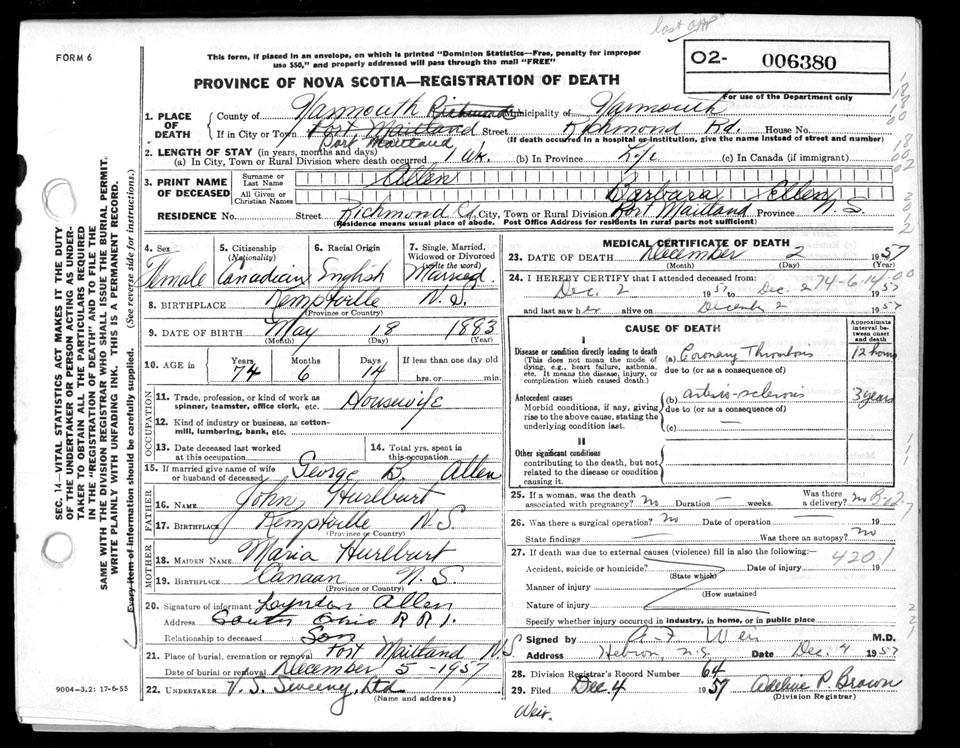 FORM 6
This form, if placed in an envelope, on which is printed "Dominion Statistics—Free, penalty for improper
use $50," and properly addressed will pass through the mail "FREE"
O2- 006380
For use of the Department only
PROVINCE OF NOVA SCOTIA—REGISTRATION OF DEATH
SEC. 14—VITAL STATISTICS ACT MAKES IT THE DUTY
OF THE UNDERTAKER OR PERSON ACTING AS UNDER-
TAKER TO OBTAIN ALL THE PARTICULARS REQUIRED
IN THE "REGISTRATION OF DEATH" AND TO FILE THE
SAME WITH THE DIVISION REGISTRAR WHO SHALL ISSUE THE BURIAL PERMIT.
WRITE PLAINLY WITH UNFADING INK. THIS IS A PERMANENT RECORD.
Every item of information should be carefully supplied. (See reverse side for instructions.)
1. PLACE OF DEATH
County of Yarmouth Richmond Municipality of Yarmouth
If in City or Town Port Maitland Street Richmond Rd. House No.
(If death occurred in a hospital or institution, give the name instead of street and number)
Port Maitland
2. LENGTH OF STAY (in years, months and days)
(a) In City, Town or Rural Division where death occurred 1 wk. (b) In Province Life (c) In Canada (if immigrant)
3. PRINT NAME OF DECEASED
Surname or Last Name Allen
All Given or Christian Names Barbara Ellen
RESIDENCE No. Street Richmond City, Town or Rural Division Port Maitland Province N.S.
(Residence means usual place of abode. Post Office Address for residents in rural parts not sufficient)
4. Sex Female
5. Citizenship (Nationality) Canadian
6. Racial Origin English
7. Single, Married, Widowed or Divorced (write the word) Married
8. BIRTHPLACE Kemptville N.S.
(Province or Country)
9. DATE OF BIRTH May 18 1883
(Month) (Day) (Year)
10. AGE in Years 74 Months 6 Days 14 If less than one day old
hrs. or min.
OCCUPATION
11. Trade, profession, or kind of work as spinner, teamster, office clerk, etc. Housewife
12. Kind of industry or business, as cotton-mill, lumbering, bank, etc.
13. Date deceased last worked at this occupation
14. Total yrs. spent in this occupation
15. If married give name of wife or husband of deceased George B. Allen
FATHER
16. NAME John Hurlburt
17. BIRTHPLACE Kemptville N.S.
(Province or Country)
MOTHER
18. MAIDEN NAME Maria Hurlburt
19. BIRTHPLACE Canaan N.S.
(Province or Country)
20. Signature of informant Lyndon Allen
Address South Ohio R R 1.
Relationship to deceased Son
21. Place of burial, cremation or removal Port Maitland N.S.
Date of burial or removal December 5 - 1957
22. UNDERTAKER V. S. Sweeny, Ltd
(Name and address)
9004—3.2: 17-6-55
MEDICAL CERTIFICATE OF DEATH
23. DATE OF DEATH December 2 1957
(Month) (Day) (Year)
24. I HEREBY CERTIFY that I attended deceased from:
Dec. 2 1957 to Dec. 2 1957
74-6-14-00
and last saw her alive on December 2 1957
CAUSE OF DEATH
Approximate interval between onset and death
I
Disease or condition directly leading to death
(This does not mean the mode of dying, e.g., heart failure, asthenia, etc. It means the disease, injury, or complication which caused death.)
(a) Coronary Thrombosis 12 hours
due to (or as a consequence of)
Antecedent causes
Morbid conditions, if any, giving rise to the above cause, stating the underlying condition last.
(b) arterio-sclerosis 3 years
due to (or as a consequence of)
(c) —
II
Other significant conditions
contributing to the death, but not related to the disease or condition causing it.
25. If a woman, was the death associated with pregnancy? no Duration — weeks. Was there a delivery? no
26. Was there a surgical operation? no Date of operation — 19
State findings — Was there an autopsy? no
27. If death was due to external causes (violence) fill in also the following:—
420.1
Accident, suicide or homicide? Date of injury 19
(State which)
Manner of injury
(How sustained
Nature of injury
Specify whether injury occurred in industry, in home, or in public place
Signed by A. F. Weir M.D.
Address Hebron, N.S. Date Dec. 4 1957
28. Division Registrar's Record Number 64
29. Filed Dec. 4 1957 Adeline P. Brown
(Division Registrar)
Weir.